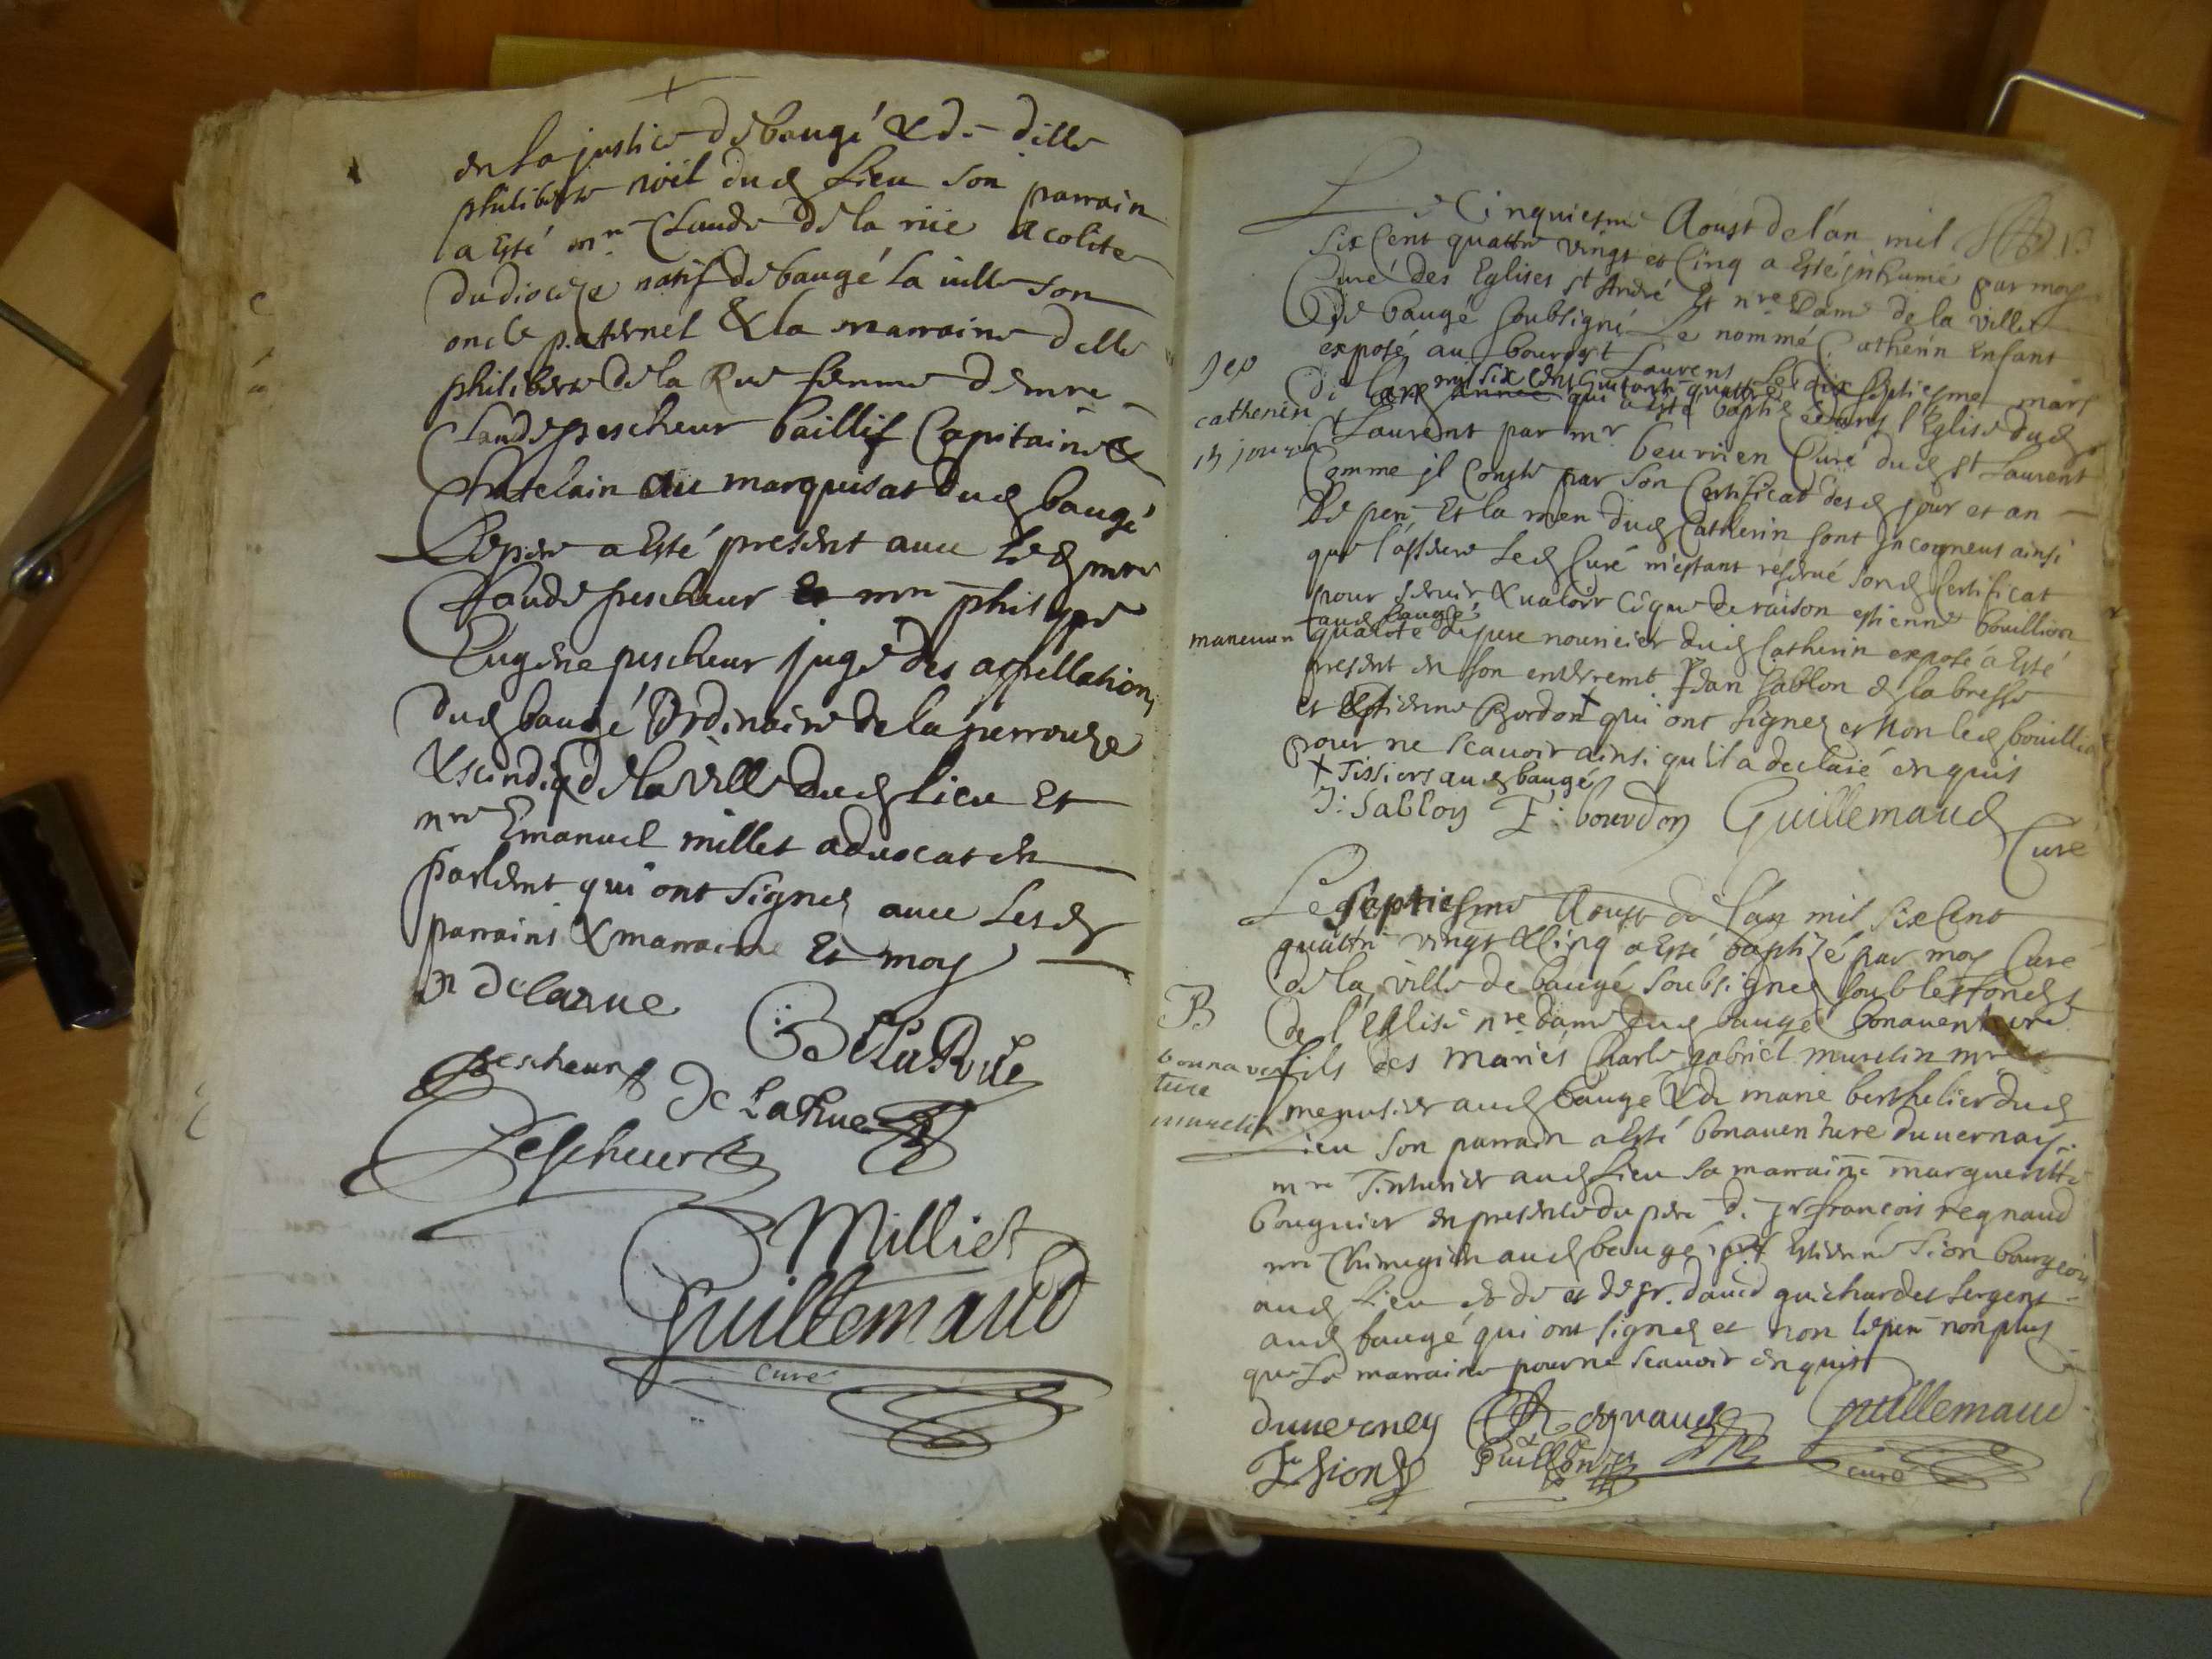 en la justice de baugé & de dlle
philiberte noël dud lieu son parrain
a esté mre Claude de la rüe acolite
du diocese natif de baugé la ville son
oncle paternel & la marraine dlle
philiberte de la Rue femme de mre
Claude pescheur baillif Capitaine &
Chatelain au marquisat dud baugé
Le pere a esté present avec led mre
Claude pescheur et mre philippe
Eugene pescheur juge des appellations
dud baugé ordinaire de la perrouze
& scindiq de la ville dud lieu et
mre Emanuel millet advocat en
parlemt qui ont signez avec lesd
parrains & marraine Et moy
delarue
C De La Rüe
Pescheur
De LaRue
Pescheur
Milliet
Guillemaud
curé
Le Cinquiesme Aoust de l'an mil
six Cent quattre vingt et Cinq a esté inhumé par moy
Curé des Eglises st André et nre Dame de la ville
de baugé soubsigné Le nommé Catherin Enfant
exposé au bourg st Laurent Le dix septiesme mars
mil six cent huitante quattre
de lad année qui a esté baptizé dans l'Eglise dud
st Laurent par mr beurrien Curé dud st Laurent
Comme il Conste par son Certificat desd jour et an
Le pere Et la mere dud Catherin sont incogneus ainsi
que l'asseure Led Curé m'estant reservé sond Certificat
pour servir & valoir ce que de raison estienne bouillion
aud baugé
manevuvr qualité de pere nouricier dud Catherin exposé a Esté
present en son enterremt Jean sablon de la bresse
et Estienne Bordon + qui ont signez et non led bouillion
pour ne scavoir ainsi qu'il a declaré enquis
+ Tissiers aud baugé
J: Sablon E: bourdon Guillemaud
Curé
Sep
catherin
Le septiesme Aoust de l'an mil six Cent
quattre vingt & Cinq a esté baptizé par moy Curé
de la ville de baugé soubsigné soub les fonds
de l'Eglise nre dame dud baugé bonaventure
fils des mariés Charle gabriel murelin mre
menusier aud baugé & de marie berthelier dud
Lieu son parrain a esté bonaventure duvernay
mre Tinturier aud lieu sa marraine marguerite
bouguier en presence du pere de sr françois regnaud
mre Chirurgien aud baugé Estienne sion bourgeois
aud Lieu et de et de sr. david guichardet sergent
aud baugé qui ont signez et non le pere non plus
que La marraine pour ne scavoir enquis
B
bonnaven
ture
murelin
duverney Regnaud Guillemaud
E sion
curé